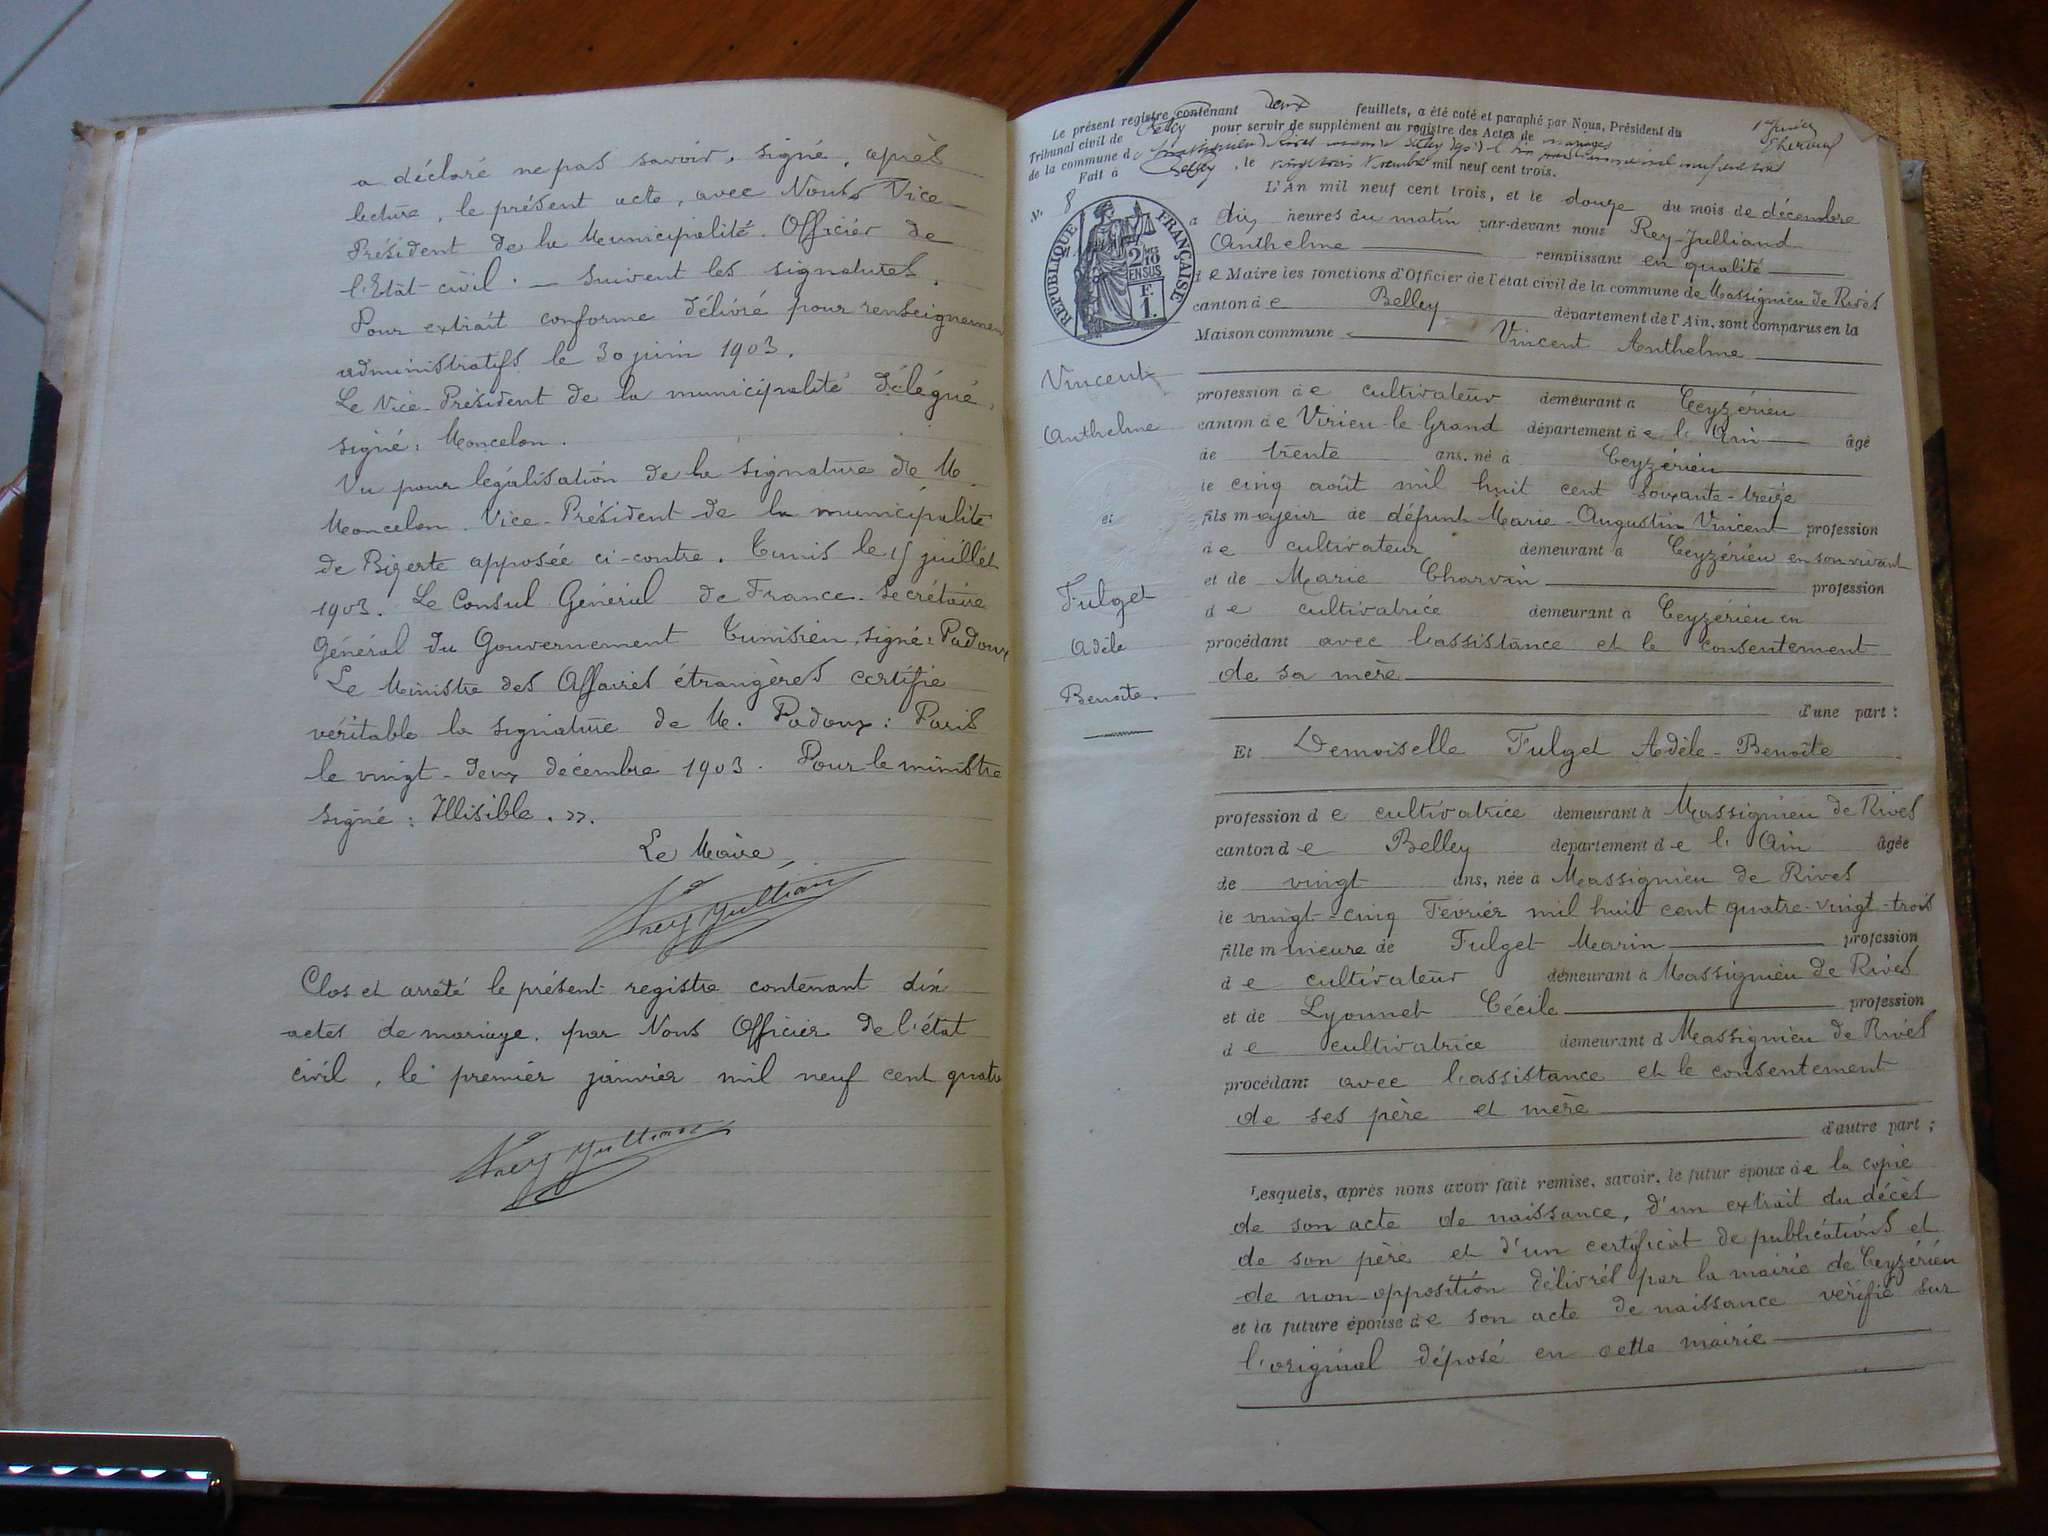 a déclaré ne pas savoir, signé, après
lecture, le présent acte, avec Nous, Vice
Président de la Municipalité. Officier de
l'Etat-civil. — Suivent les signatures.
Pour extrait conforme délivré pour renseignemen
administratifs le 30 juin 1903.
Le Vice-Président de la municipalité délégué,
signé: Moncelon.
Vu pour légalisation de la signature de M.
Moncelon. Vice-Président de la municipalité
de Bizerte apposée ci-contre. Tunis le 15 juillet
1903. Le Consul Général de France. Secrétaire
Général du Gouvernement Tunisien, signé: Padoux
Le Ministre des Affaires étrangères certifie
véritable la signature de M. Padoux: Paris
le vingt-deux décembre 1903. Pour le ministre
signé: Illisible. ».
Le Maire,
Rey Jullian
Clos et arrêté le présent registre contenant dix
actes de mariage, par Nous Officier de l'état
civil, le premier janvier mil neuf cent quatre
Rey Jullian
Le présent registre contenant deux feuillets, a été coté et paraphé par Nous, Président du
Tribunal civil de Belley pour servir de supplément au registre des Actes de mariages
de la commune d
Fait à Belley, le vingt trois Novembre mil neuf cent trois.
N. 8
RÉPUBLIQUE FRANÇAISE
2 10MES
EN SUS
F.
1.
L'An mil neuf cent trois, et le douze du mois de décembre
a dix heures du matin par-devant nous Rey-Julliand
Anthelme remplissant en qualité
de Maire les fonctions d'Officier de l'état civil de la commune de Massignieu de Rives
canton de Belley département de l'Ain, sont comparus en la
Maison commune Vincent Anthelme
Vincent
Anthelme
et
Fulget
Adèle
Benoîte.
profession de cultivateur demeurant à Ceyzérieu
canton de Virieu-le-Grand département de l'Ain âgé
de trente ans, né à Ceyzérieu
le cinq août mil huit cent soixante-treize
fils majeur de défunt Marie-Augustin Vincent profession
de cultivateur demeurant à Ceyzérieu en son vivant
et de Marie Charvin profession
de cultivatrice demeurant à Ceyzérieu en
procédant avec l'assistance et le consentement
de sa mère
d'une part:
Et Demoiselle Fulget Adèle-Benoîte
profession de cultivatrice demeurant à Massignieu de Rives
canton de Belley département de l'Ain âgée
de vingt ans, née à Massignieu de Rives
le vingt-cinq Février mil huit cent quatre-vingt-trois
fille mineure de Fulget Marin profession
de cultivateur demeurant à Massignieu de Rives
et de Lyonnet Cécile profession
de cultivatrice demeurant à Massignieu de Rives
procédant avec l'assistance et le consentement
de ses père et mère
d'autre part;
Lesquels, après nous avoir fait remise, savoir, le futur époux de la copie
de son acte de naissance, d'un extrait du décès
de son père et d'un certificat de publications et
de non opposition délivrés par la mairie de Ceyzérieu
et la future épouse de son acte de naissance vérifié sur
l'original déposé en cette mairie